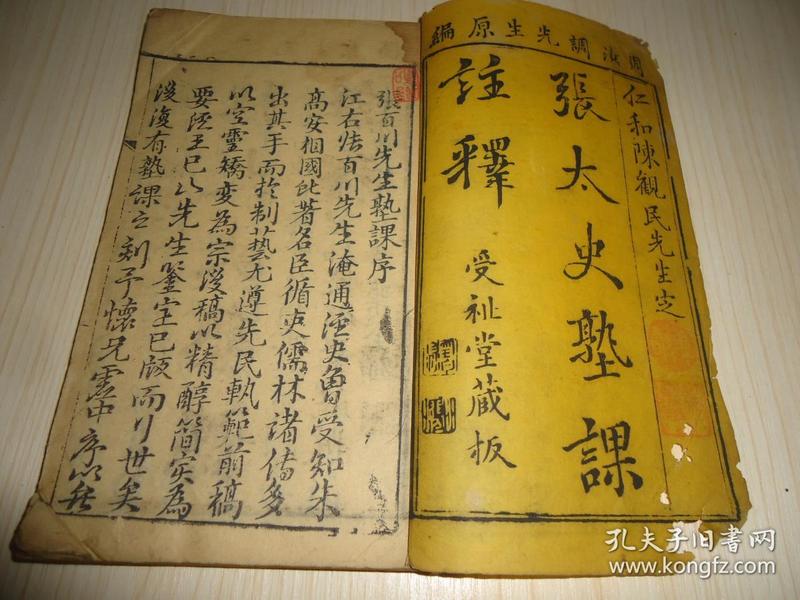 調先生原編
仁和陳觀民先生定
張太史塾課
註釋
受祉堂藏板
張百川先生塾課序
江右張百川先生淹通經史曾受知朱
高安相國此著名臣循吏儒林諸傳多
出其手而於制藝尤遵先民軌範前稿
以空靈矯變為宗後稿以精醇簡實為
要陸王已以先生鑒定已版而行世矣
後復有塾課之刻予懷兄雲中序以
孔夫子旧书网
www.kongfz.com